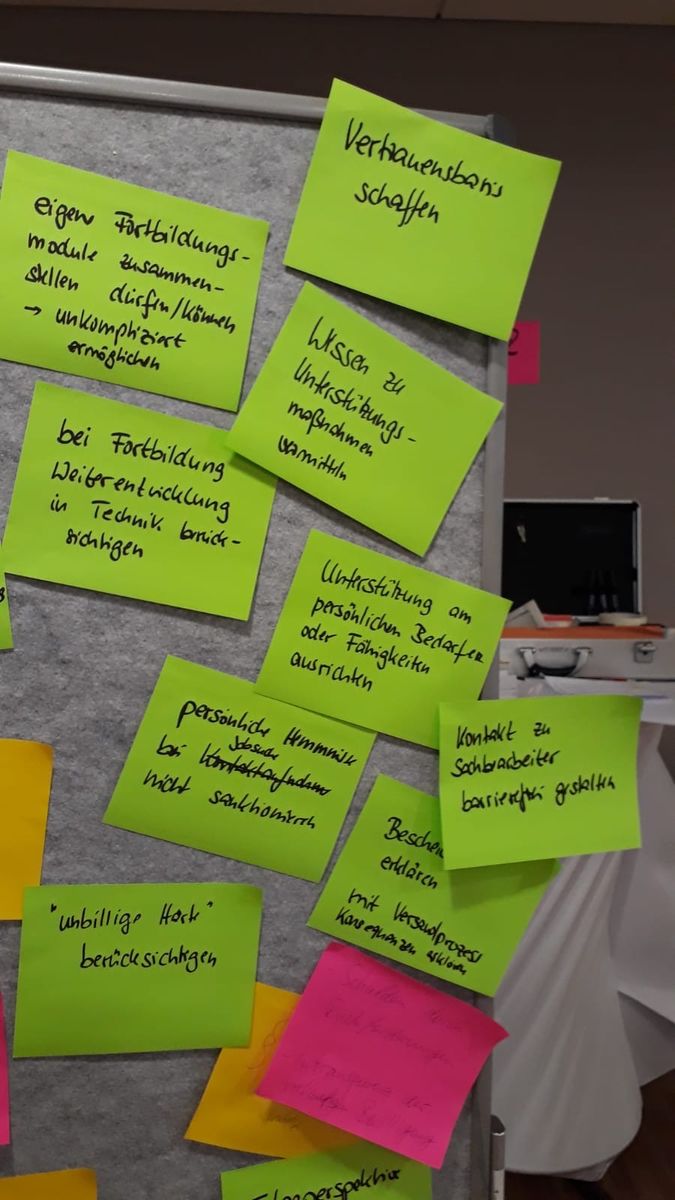 Vertrauensbasis
schaffen
eigene Fortbildungs-
module zusammen-
stellen dürfen/können
→ unkompliziert
ermöglichen
Wissen zu
Unterstützungs-
maßnahmen
vermitteln
bei Fortbildung
Weiterentwicklung
in Technik berück-
sichtigen
Unterstützung am
persönlichen Bedarfen
oder Fähigkeiten
ausrichten
persönliche Hemmnisse
bei Jobsuche
nicht sanktionieren
Kontakt zu
Sachbearbeiter
barrierefrei gestalten
erklären
mit Versandprozess
Konsequenzen erklären
"unbillige Härte"
berücksichtigen
2